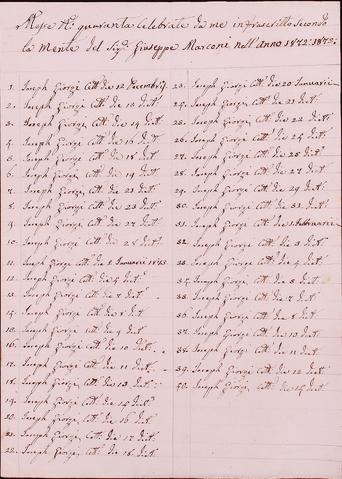 Messe N.º quaranta celebrate da me infrascritto Secondo
la Mente del Sig.r Giuseppe Marconi nell'Anno 1872. 1873:
1. Joseph Giorgi Cott. die 12 Decembris
2. Joseph Giorgi Cott. die 13 dict.
3. Joseph Giorgi, Cott. die 14 dict.
4. Joseph Giorgi Cott. die 16 dict.
5. Joseph Giorgi Cott. die 18 dict.
6. Joseph Giorgi Cott. die 19 dict.
7. Joseph Giorgi Cott. die 21 dict.
8. Joseph Giorgi Cott. die 23 dict.
9. Joseph Giorgi Cott. die 27 dict.
10. Joseph Giorgi Cott. die 28 dict.
11. Joseph Giorgi Cott. die Januarii 1873.
12. Joseph Giorgi Cott. die dict.
13. Joseph Giorgi Cott. die 7 dict.
Joseph Giorgi Cott. die 8 dict
15. Joseph Giorgi Cott. die 9 dict.
16. Joseph Giorgi Cott. die 10 dict.
17. Joseph Giorgi Cott. die 11 dict.
18. Joseph Giorgi Cott. die 13 dict.
19. Joseph Giorgi Cott. die 15 dict.
20. Joseph Giorgi, Cott. die 16 dict.
21. Joseph Giorgi, Cott. die 17 dict.
22. Joseph Giorgi, Cott. die 18 dict.
23. Joseph Giorgi Cott. die 20 Januarii
24. Joseph Giorgi Cott. die 21 dict.
25. Joseph Giorgi Cott. die 22 dict.
26. Joseph Giorgi Cott. die 24 dict.
27. Joseph Giorgi Cott. die dict.
28. Joseph Giorgi Cott. die 27 dict.
29. Joseph Giorgi Cott. die 29 dict.
30. Joseph Giorgi Cott. die 31 dict.
31. Joseph Giorgi Cott. die 1 Februarii
32. Joseph Giorgi Cott. die 3 dict.
33. Joseph Giorgi Cott. die 4 dict.
34. Joseph Giorgi Cott. die dict.
35. Joseph Giorgi Cott. die 7 dict.
36. Joseph Giorgi Cott. die 8 dict.
37. Joseph Giorgi Cott. die 10 dict.
38. Joseph Giorgi Cott. die 11 dict.
39. Joseph Giorgi Cott. die 12 dict.
40. Joseph Giorgi Cott. die dict.